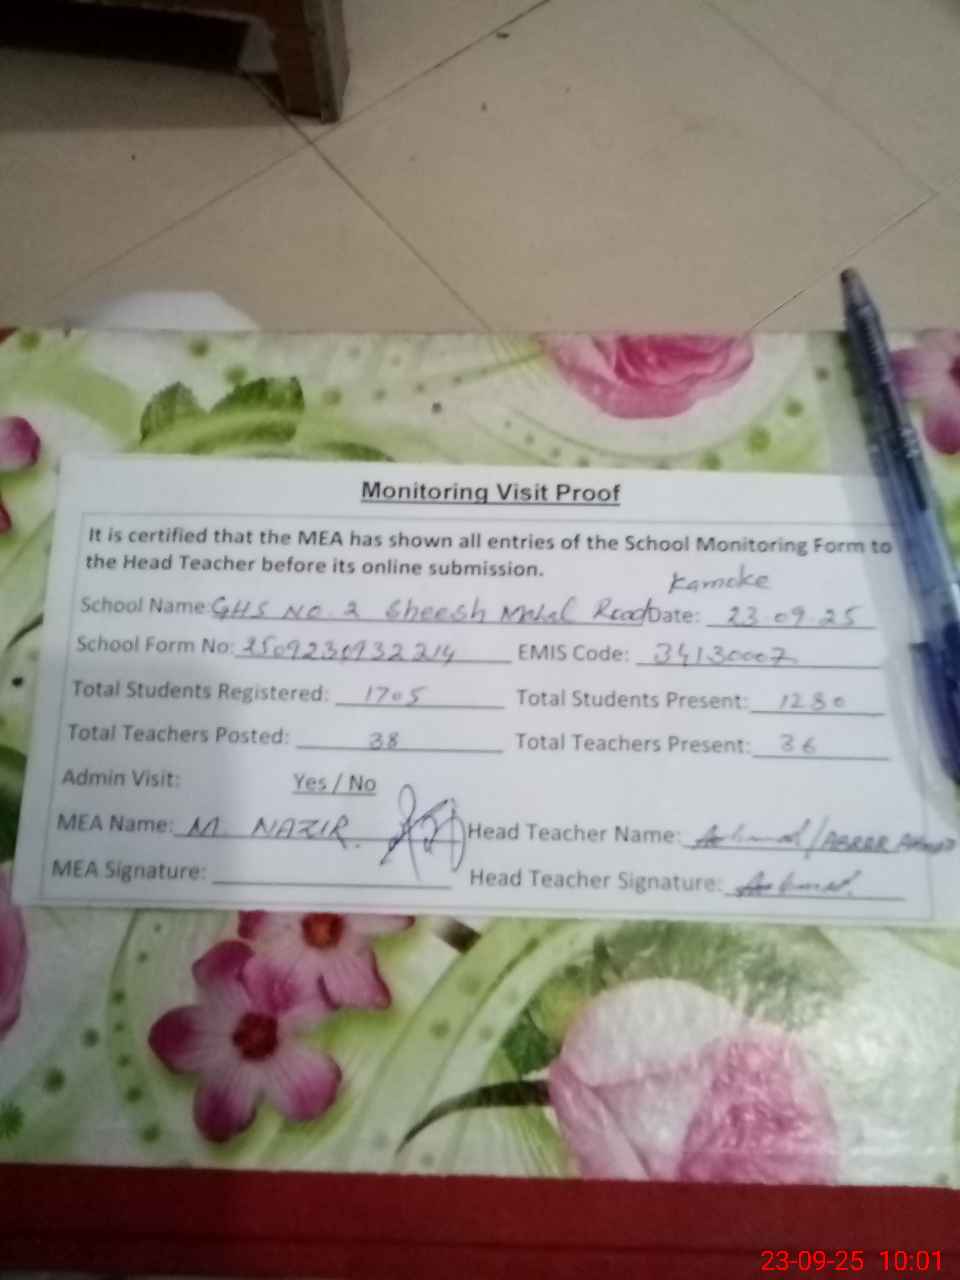 Monitoring Visit Proof
It is certified that the MEA has shown all entries of the School Monitoring Form to
the Head Teacher before its online submission.
Kamoke
School Name: GHS No. 2 Sheesh Mahal Road Date: 23.09.25
School Form No: EMIS Code: 34130007
Total Students Registered: 1705 Total Students Present: 1280
Total Teachers Posted: 38 Total Teachers Present: 36
Admin Visit: Yes / No
MEA Name: M. NAZIR. Head Teacher Name: /ABRAR AHMED
MEA Signature: Head Teacher Signature:
23-09-25 10:01